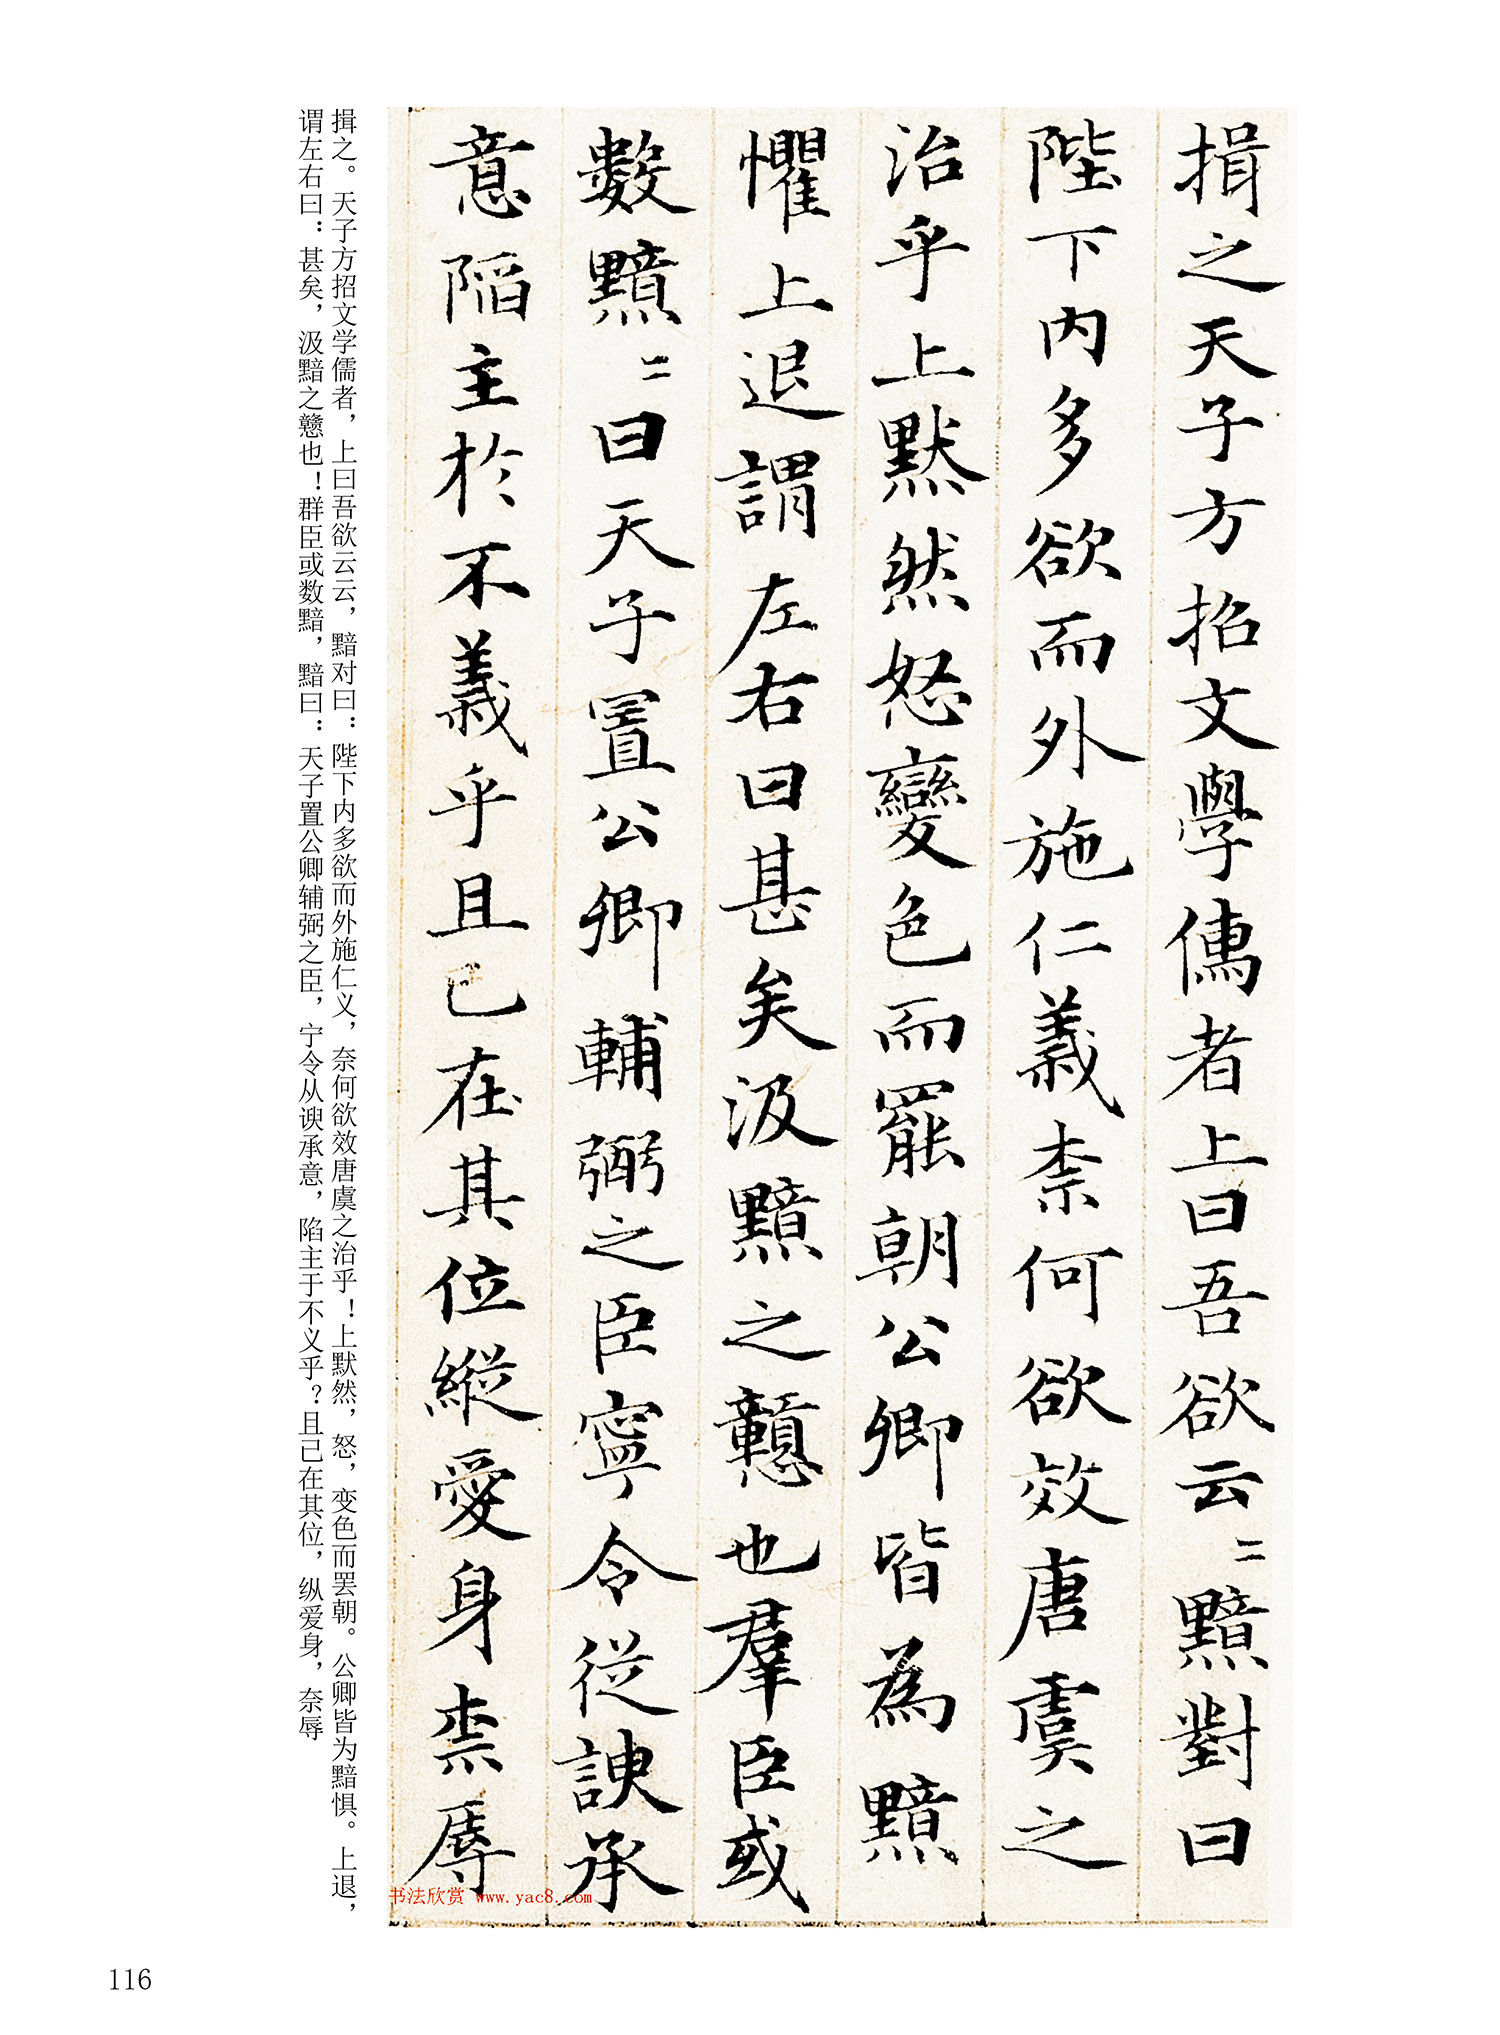 揖之天子方招文學儒者上曰吾欲云〻黯對曰
陛下内多欲而外施仁義柰何欲效唐虞之
治乎上默然怒變色而罷朝公卿皆為黯
懼上退謂左右曰甚矣汲黯之戇也羣臣或
數黯〻曰天子置公卿輔弼之臣寧令從諛承
意陷主於不義乎且已在其位縱愛身柰辱
揖之。天子方招文学儒者，上曰吾欲云云，黯对曰：陛下内多欲而外施仁义，奈何欲效唐虞之治乎！上默然，怒，变色而罢朝。公卿皆为黯惧。上退，
谓左右曰：甚矣，汲黯之戆也！群臣或数黯，黯曰：天子置公卿辅弼之臣，宁令从谀承意，陷主于不义乎？且已在其位，纵爱身，奈辱
书法欣赏 www.yac8.com
116